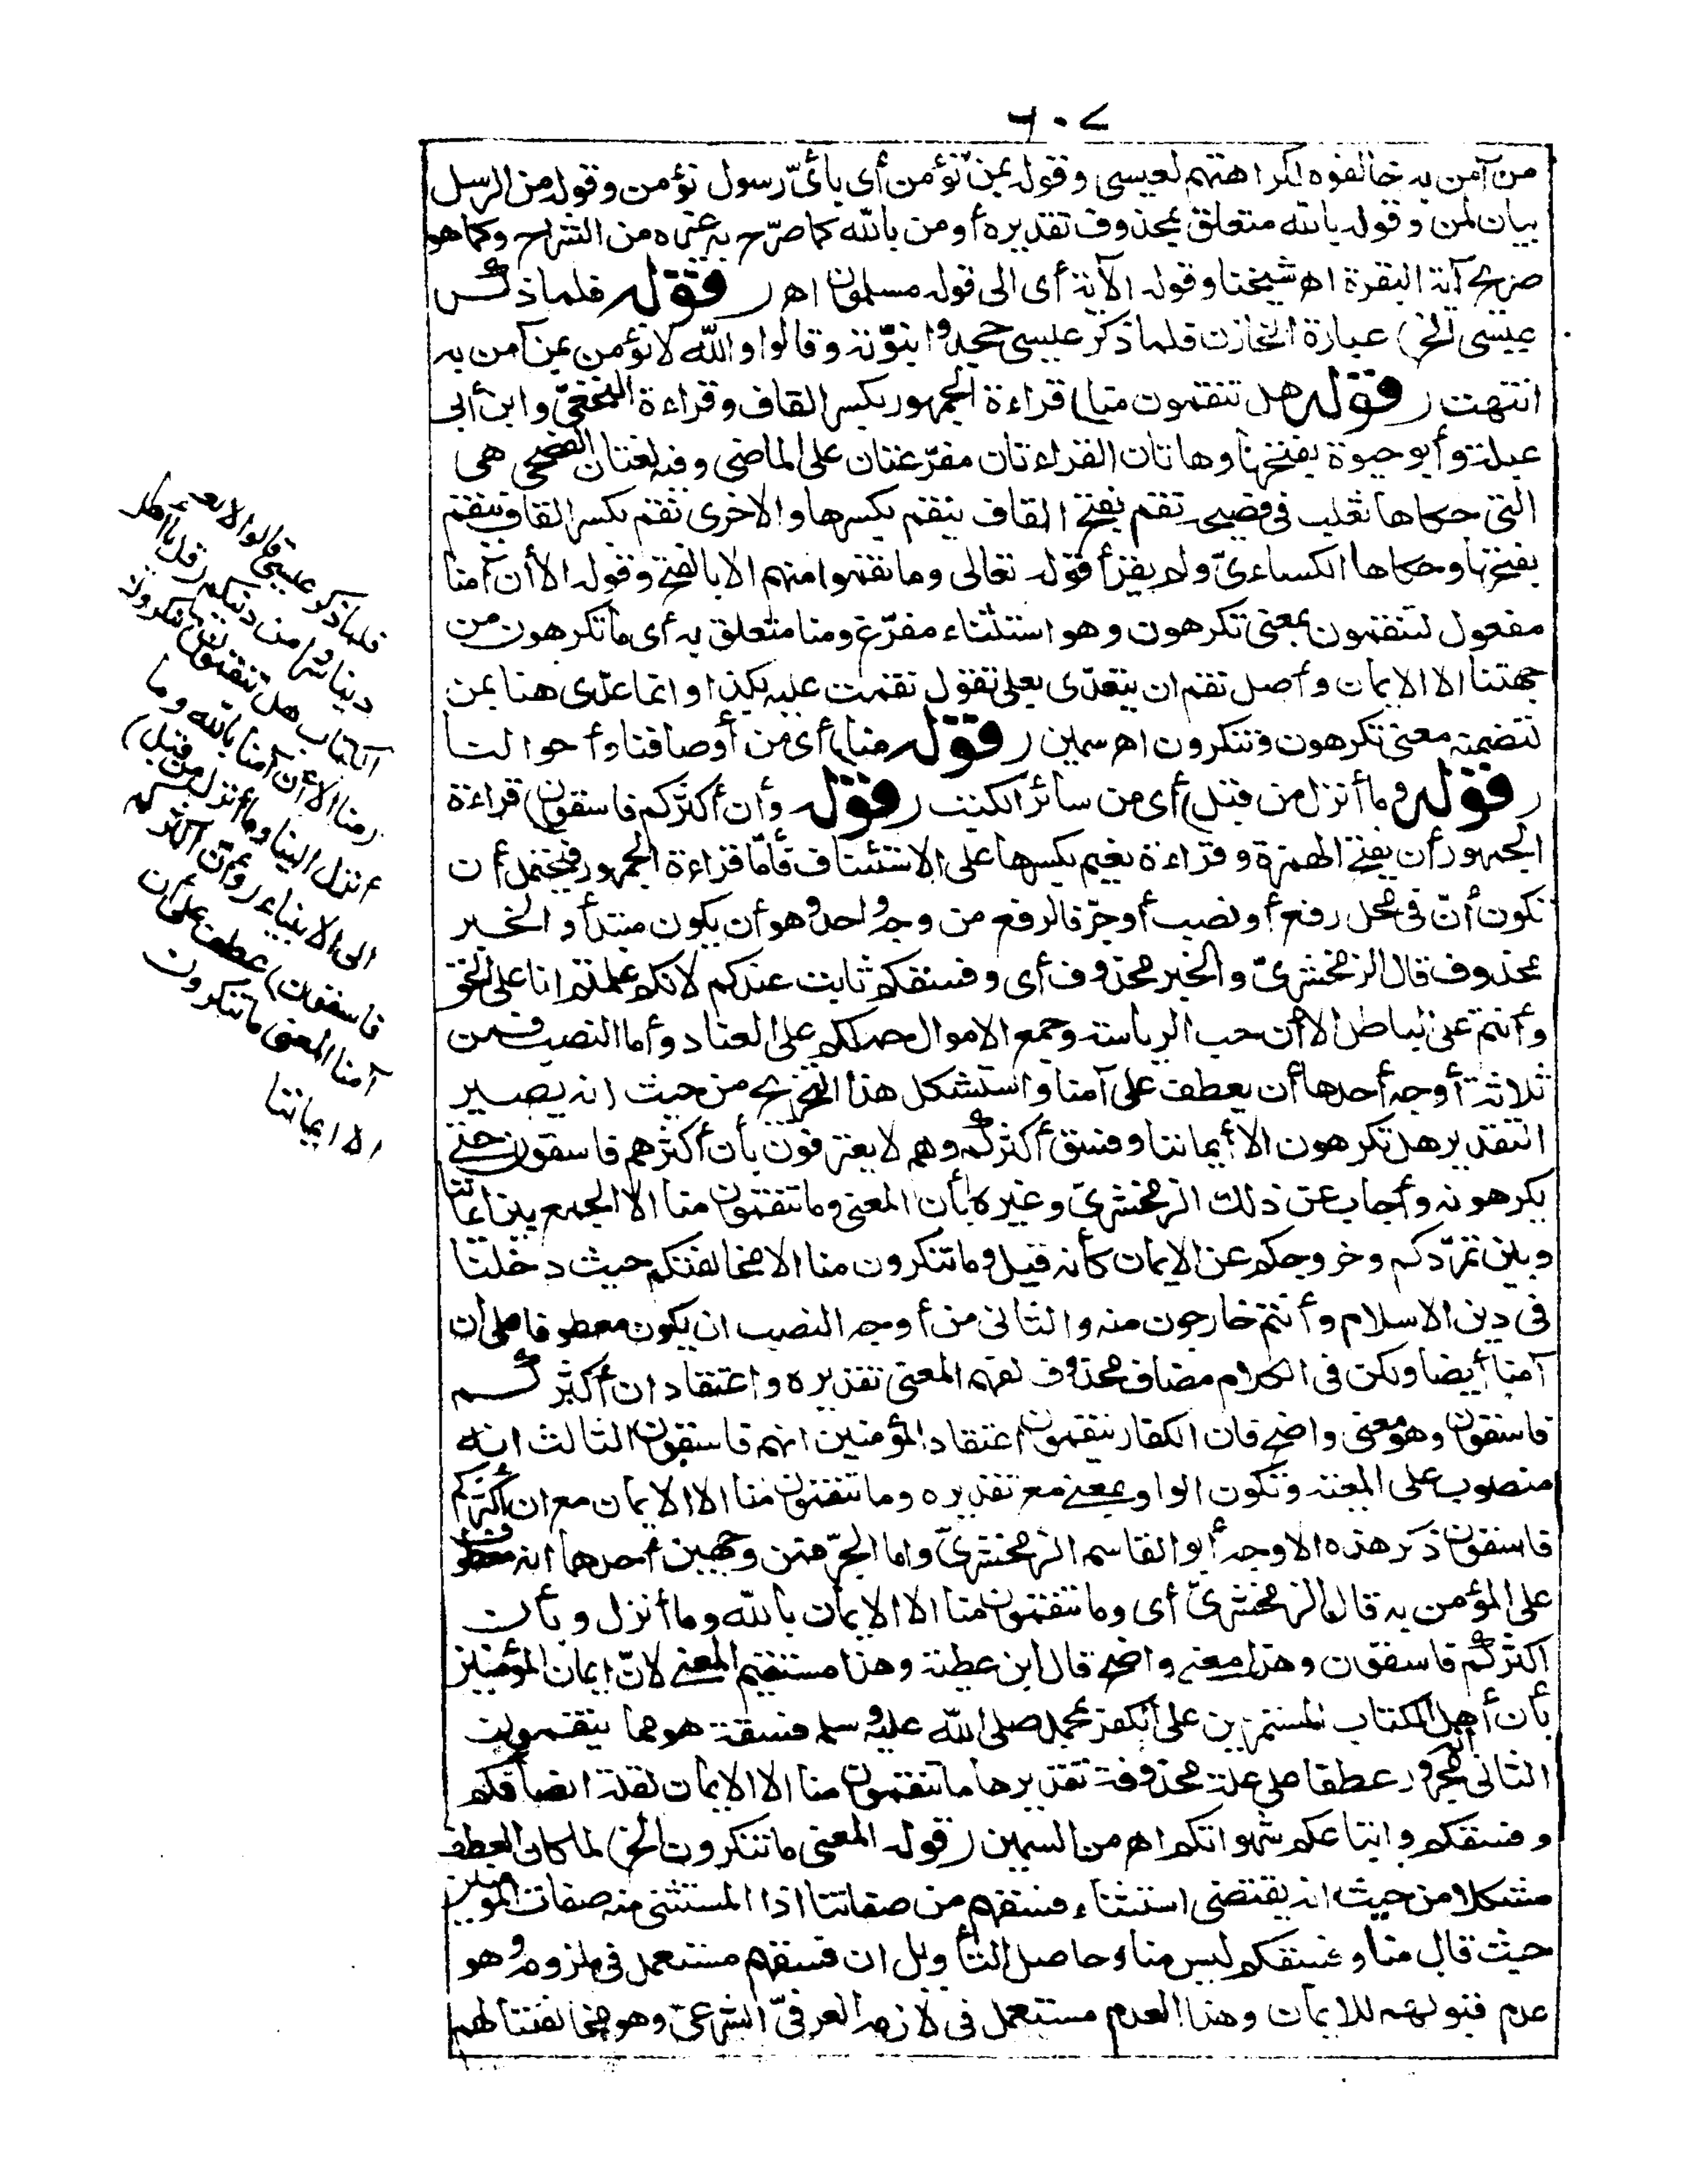 ٦٠٧
من آمن به خالفوه لكراهتهم لعيسى وقوله بمن تؤمن أى بأىّ رسول تؤمن وقوله من الرسل
بيان لمن وقوله بالله متعلق بمحذوف تقديره أومن بالله كما صرّح به غيره من الشراح وكما هو
صريح آية البقرة اه شيخنا وقوله الآية أى الى قوله مسلمون اه (قوله فلما ذكر
عيسى الخ) عبارة الخازن فلما ذكر عيسى جحدوا نبوّته وقالوا والله لا نؤمن بمن آمن به
انتهت (قوله هل تنقمون منا) قراءة الجمهور بكسر القاف وقراءة النخعىّ وابن أبى
عبلة وأبو حيوة بفتحها وهاتان القراءتان مفرّعتان على الماضى وفيه لغتان الفصحى هى
التى حكاها ثعلب فى فصيحه نقم بفتح القاف ينقم بكسرها والاخرى نقم بكسر القاف ينقم
بفتحها وحكاها الكساءىّ ولم يقرأ قوله تعالى وما نقموا منهم الا بالفتح وقوله الا أن آمنا
مفعول لتنقمون بمعنى تكرهون وهو استثناء مفرّغ ومنا متعلق به أى ما تكرهون من
جهتنا الا الايمان وأصل نقم ان يتعدّى بعلى تقول نقمت عليه بكذا وانما عدّى هنا بمن
لتضمنه معنى تكرهون وتنكرون اه سمين (قوله منا) أى من أوصافنا وأحوالنا
(قوله وما أنزل من قبل) أى من سائر الكتب (قوله وأن أكثركم فاسقون) قراءة
الجمهور أن بفتح الهمزة وقراءة نعيم بكسرها على الاستئناف فأمّا قراءة الجمهور فيحتمل أن
تكون أنّ فى محل رفع أو نصب أو جرّ فالرفع من وجه واحد وهو أن يكون مبتدأ والخبر
محذوف قال الزمخشرىّ والخبر محذوف أى وفسقكم ثابت عندكم لانكم علمتم انا على الحق
وأنتم على الباطل الا أن حب الرياسة وجمع الاموال حملكم على العناد وأما النصب فمن
ثلاثة أوجه أحدها أن يعطف على آمنا واستشكل هذا التخريج من حيث انه يصير
التقدير هل تكرهون الا أيماننا وفسق أكثركم وهم لا يعترفون بأن أكثرهم فاسقون حتى
يكرهونه وأجاب عن ذلك الزمخشرىّ وغيره بأن المعنى وما تنقمون منا الا الجمع بين ايماننا
وبين تمرّدكم وخروجكم عن الايمان كأنه قيل وما تنكرون منا الا مخالفتكم حيث دخلنا
فى دين الاسلام وأنتم خارجون منه والثانى من أوجه النصب ان يكون معطوفا على ان
آمنا أيضا ولكن فى الكلام مضاف محذوف لفهم المعنى تقديره واعتقاد ان أكثركم
فاسقون وهو معنى واضح فان الكفار ينقمون اعتقاد المؤمنين انهم فاسقون الثالث انه
منصوب على المعية وتكون الواو بمعنى مع تقديره وما تنقمون منا الا الايمان مع ان أكثركم
فاسقون ذكر هذه الاوجه أبو القاسم الزمخشرىّ واما الجرّ فمن وجهين أحدهما انه معطوف
على المؤمن به قال الزمخشرىّ أى وما تنقمون منا الا الايمان بالله وما أنزل وبأن
أكثركم فاسقون وهذا معنى واضح قال ابن عطية وهذا مستقيم المعنى لانّ ايمان المؤمنين
بأن أهل الكتاب المستمرين على الكفر بمحمد صلى الله عليه وسلم فسقة هو مما ينقمونه
الثانى انه مجرور عطفا على علة محذوفة تقديرها ما تنقمون منا الا الايمان لقلة انصافكم
وفسقكم واتباعكم شهواتكم اه من السمين (قوله المعنى ما تنكرون الخ) لما كان العطف
مشكلا من حيث انه يقتضى استثناء فسقهم من صفاتنا اذا المستثنى منه صفات المؤمنين
حيث قال منا وفسقكم ليس منا وحاصل التأويل ان فسقهم مستعمل فى ملزومه وهو
عدم قبولهم للايمان وهذا العدم مستعمل فى لازمه العرفىّ الشرعىّ وهو مخالفتنا لهم
فلما ذكر عيسى قالوا لا نعلم
دينا شرا من دينكم (قل يا أهل
الكتاب هل تنقمون) تنكرون
(منا الا أن آمنا بالله وما
أنزل الينا وما أنزل من قبل)
الى الانبياء (وأن أكثركم
فاسقون) عطف على أن
آمنا المعنى ما تنكرون
الا ايماننا